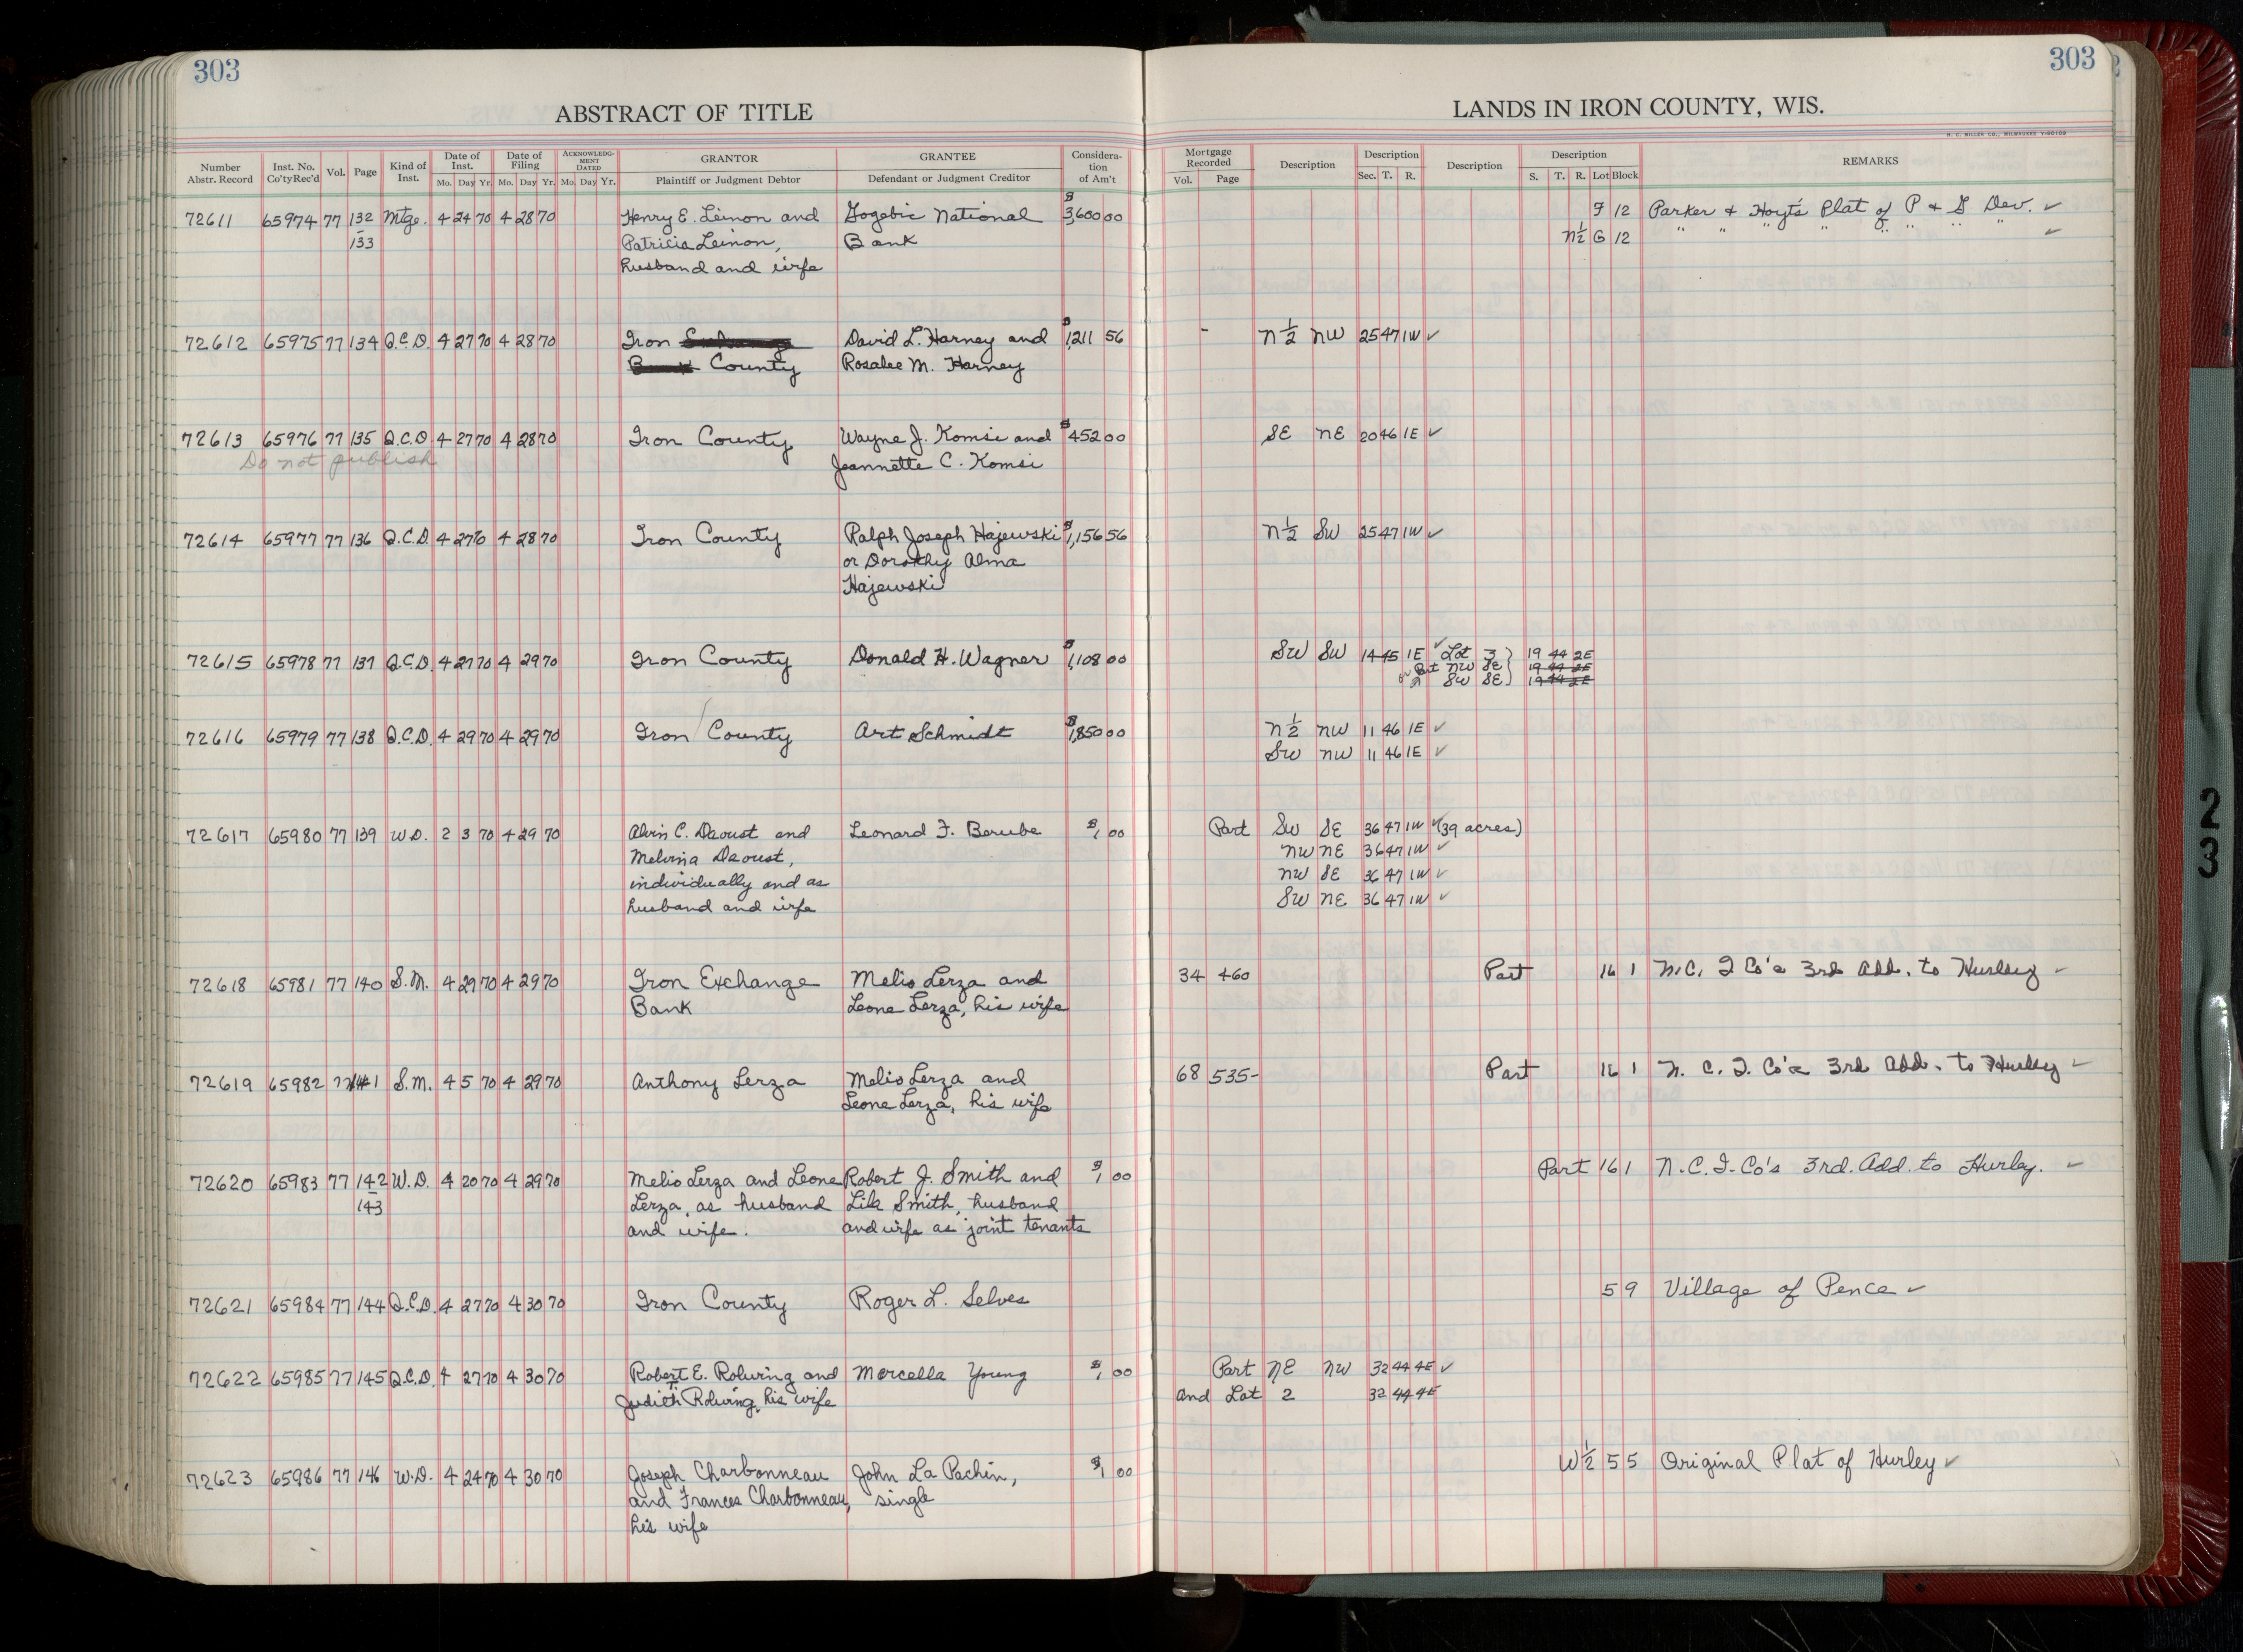 303
303
ABSTRACT OF TITLE
LANDS IN IRON COUNTY, WIS.
H. C. MILLER CO., MILWAUKEE V-90109
Number Abstr. Record | Inst. No. Co'ty Rec'd | Vol. | Page | Kind of Inst. | Date of Inst. Mo. Day Yr. | Date of Filing Mo. Day Yr. | ACKNOWLEDGMENT DATED Mo. Day Yr. | GRANTOR Plaintiff or Judgment Debtor | GRANTEE Defendant or Judgment Creditor | Consideration of Am't | Mortgage Recorded Vol. Page | Description | Description Sec. T. R. | Description | Description S. T. R. Lot Block | REMARKS
72611 65974 77 132 Mtge. 4 24 70 4 28 70 Henry E. Leinon and Gogebic National $3,600 00 F 12 Parker & Hoyt's Plat of P & G Dev. ✓
- 133 Patricia Leinon, Bank N½ G 12 " " " " " " " " ✓
husband and wife
72612 65975 77 134 Q.C.D. 4 27 70 4 28 70 Iron David L. Harney and $1,211 56 - N½ NW 25 47 1W ✓
County Rosalee M. Harney
72613 65976 77 135 Q.C.D 4 27 70 4 28 70 Iron County Wayne J. Komsi and $452 00 SE NE 20 46 1E ✓
Do not publish Jeannette C. Komsi
72614 65977 77 136 Q.C.D. 4 27 70 4 28 70 Iron County Ralph Joseph Hajewski $1,156 56 N½ SW 25 47 1W ✓
or Dorothy Alma
Hajewski
72615 65978 77 137 Q.C.D. 4 27 70 4 29 70 Iron County Donald H. Wagner $1,108 00 SW SW 14 45 1E ✓ Lot 3 ) 19 44 2E
NW SE ) 19 44 2E
SW SE ) 19 44 2E
72616 65979 77 138 Q.C.D. 4 29 70 4 29 70 Iron County Art Schmidt $1,850 00 N½ NW 11 46 1E ✓
SW NW 11 46 1E ✓
72617 65980 77 139 W.D. 2 3 70 4 29 70 Alvin C. Daoust and Leonard F. Berube $1 00 Part SW SE 36 47 1W ✓ (39 acres)
Melvina Daoust, NW NE 36 47 1W ✓
individually and as NW SE 36 47 1W ✓
husband and wife SW NE 36 47 1W ✓
72618 65981 77 140 S.M. 4 29 70 4 29 70 Iron Exchange Melio Lerza and 34 460 Part 16 1 N.C. I Co's 3rd Add. to Hurley ✓
Bank Leone Lerza, his wife
72619 65982 77 141 S.M. 4 5 70 4 29 70 Anthony Lerza Melio Lerza and 68 535- Part 16 1 N. C. I. Co's 3rd Add. to Hurley ✓
Leone Lerza, his wife
72620 65983 77 142 W.D. 4 20 70 4 29 70 Melio Lerza and Leone Robert J. Smith and $1 00 Part 16 1 N.C.I.Co's 3rd. Add. to Hurley. ✓
- 143 Lerza, as husband Lila Smith, husband
and wife. and wife as joint tenants
72621 65984 77 144 Q.C.D. 4 27 70 4 30 70 Iron County Roger L. Selves 5 9 Village of Pence ✓
72622 65985 77 145 Q.C.D. 4 27 70 4 30 70 Robert E. Rolwing and Marcella Young $1 00 Part NE NW 32 44 4E ✓
Judith Rolwing, his wife and Lot 2 32 44 4E
72623 65986 77 146 W.D. 4 24 70 4 30 70 Joseph Charbonneau John La Pachin, $1 00 W½ 5 5 Original Plat of Hurley ✓
and Frances Charbonneau, single
his wife
23